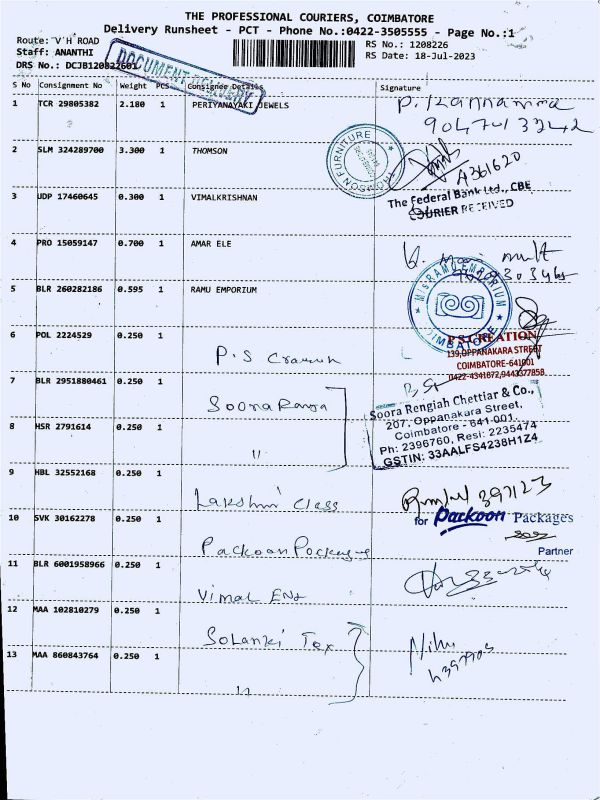 THE PROFESSIONAL COURIERS, COIMBATORE
Delivery Runsheet - PCT - Phone No.:0422-3505555 - Page No.:1
Route: V H ROAD
RS No.: 1208226
Staff: ANANTHI
RS Date: 18-Jul-2023
DRS No.: DCJB120822601
DOCUMENT DELIVERY
S No Consignment No Weight PCS Consignee Details Signature
1 TCR 29805382 2.180 1 PERIYANAYAKI JEWELS
2 SLM 324289700 3.300 1 THOMSON
THOMSON FURNITURE
A361620
3 UDP 17460645 0.300 1 VIMALKRISHNAN
The Federal Bank Ltd., CBE
COURIER RECEIVED
4 PRO 15059147 0.700 1 AMAR ELE
5 BLR 260282186 0.595 1 RAMU EMPORIUM
MISRAMU EMPORIUM
COIMBATORE
6 POL 2224529 0.250 1 P.S Creation
P S CREATION
139,OPPANAKARA STREET
COIMBATORE-641001
0422-4341672,9443377858
7 BLR 2951880461 0.250 1 Soora Ranga
Soora Rengiah Chettiar & Co.,
207, Oppanakara Street,
Coimbatore - 641 001.
Ph: 2396760, Resi: 2235474
GSTIN: 33AALFS4238H1Z4
8 HSR 2791614 0.250 1 "
9 HBL 32552168 0.250 1 Lakshmi Class
10 SVK 30162278 0.250 1 Packoon Package
for Packoon Packages
Partner
11 BLR 6001958966 0.250 1 Vimal Ent
12 MAA 102810279 0.250 1 Solanki Tex
13 MAA 860843764 0.250 1 "